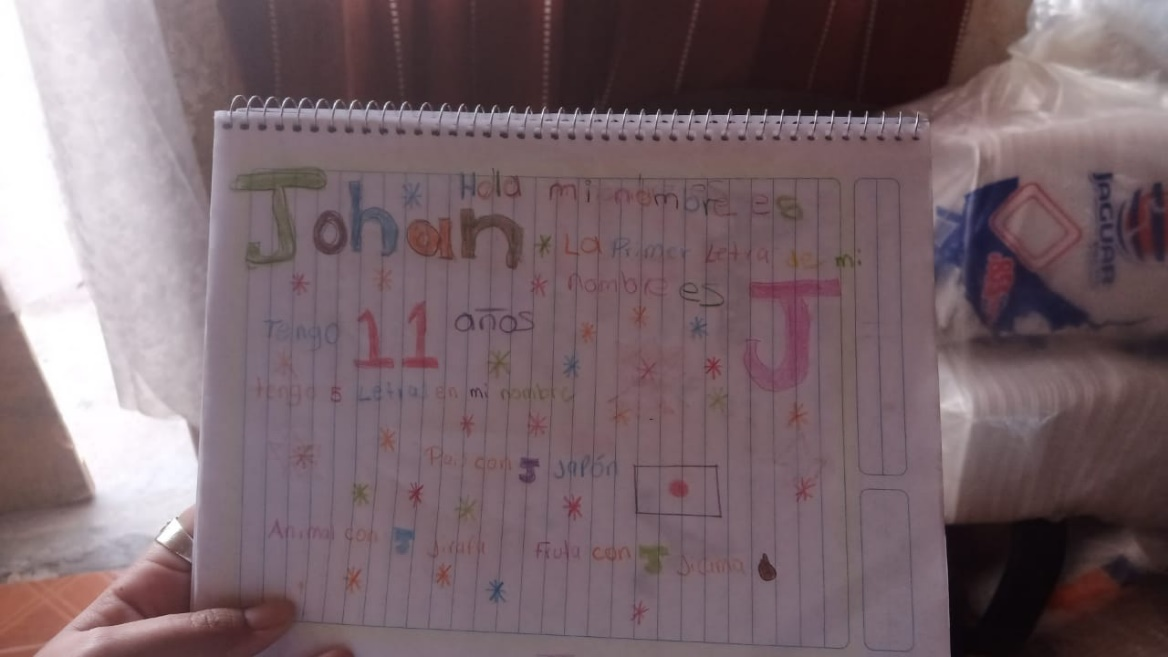 Hola mi nombre es
Johan
La Primer Letra de mi
nombre es J
Tengo 11 años
tengo 5 Letras en mi nombre
Pais con J Japón
Animal con J Jirafa
Fruta con J Jicma
JAGUAR